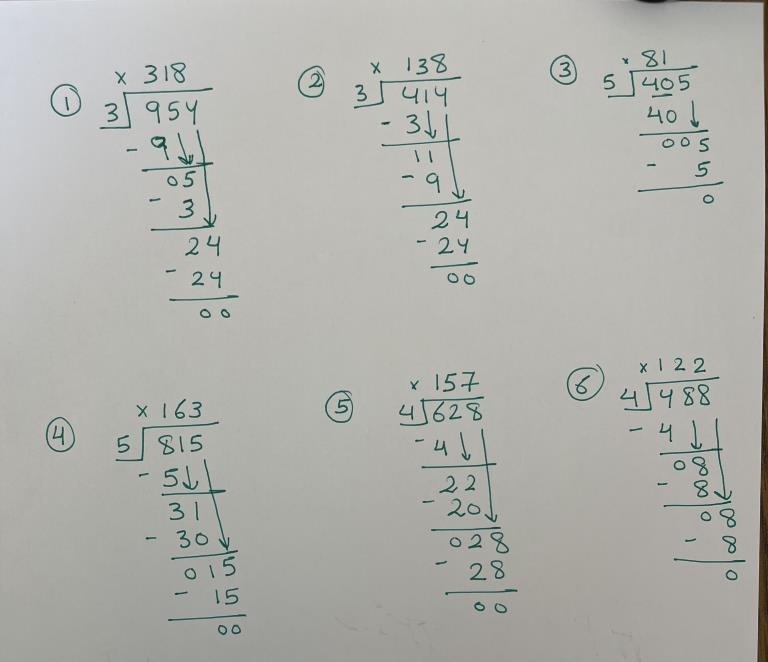 ① × 318
3 954
- 9
05
- 3
24
- 24
00
② × 138
3 414
- 3
11
- 9
24
- 24
00
③ × 81
5 405
40
005
- 5
0
④ × 163
5 815
- 5
31
- 30
015
- 15
00
⑤ × 157
4 628
- 4
22
- 20
028
- 28
00
⑥ × 122
4 488
- 4
08
- 8
08
- 8
0